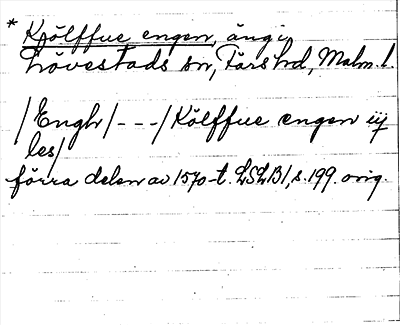 * Kjölffue engen, äng i
Lövestads sn, Färs hd, Malm. l.
/Engh/---/Kölffue engen iij
les/
förra delen av 1570-t. LSLB1, s. 199. orig.